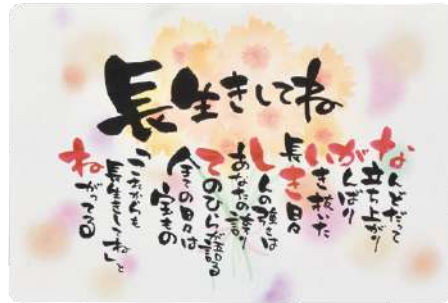 長生きしてね
なんどだって
立ち上がり
がんばり
いき抜いた
長き日々
しんの強さは
あなたの誇り
てのひらが語る
全ての日々は
宝もの
これからも
「長生きしてね」と
ねがってる